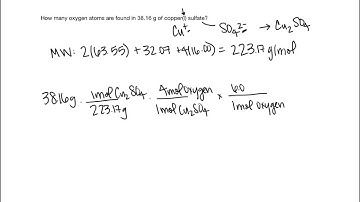 How many oxygen atoms are found in 38.16 g of copper(I) sulfate?
Cu⁺ SO₄²⁻ → Cu₂SO₄
MW: 2(63.55) + 32.07 + 4(16.00) = 223.17 g/mol
38.16g · 1mol Cu₂SO₄ / 223.17g · 4mol oxygen / 1mol Cu₂SO₄ × 6.0 / 1mol oxygen